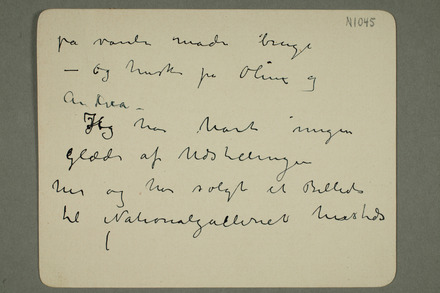 N1045
på vanlr made bruge
– og husk på Oline og
Andrea –
Jeg har havt ingen
glæde af Udstillingen
her og har solgt et Billede
til Nationalgalleriet